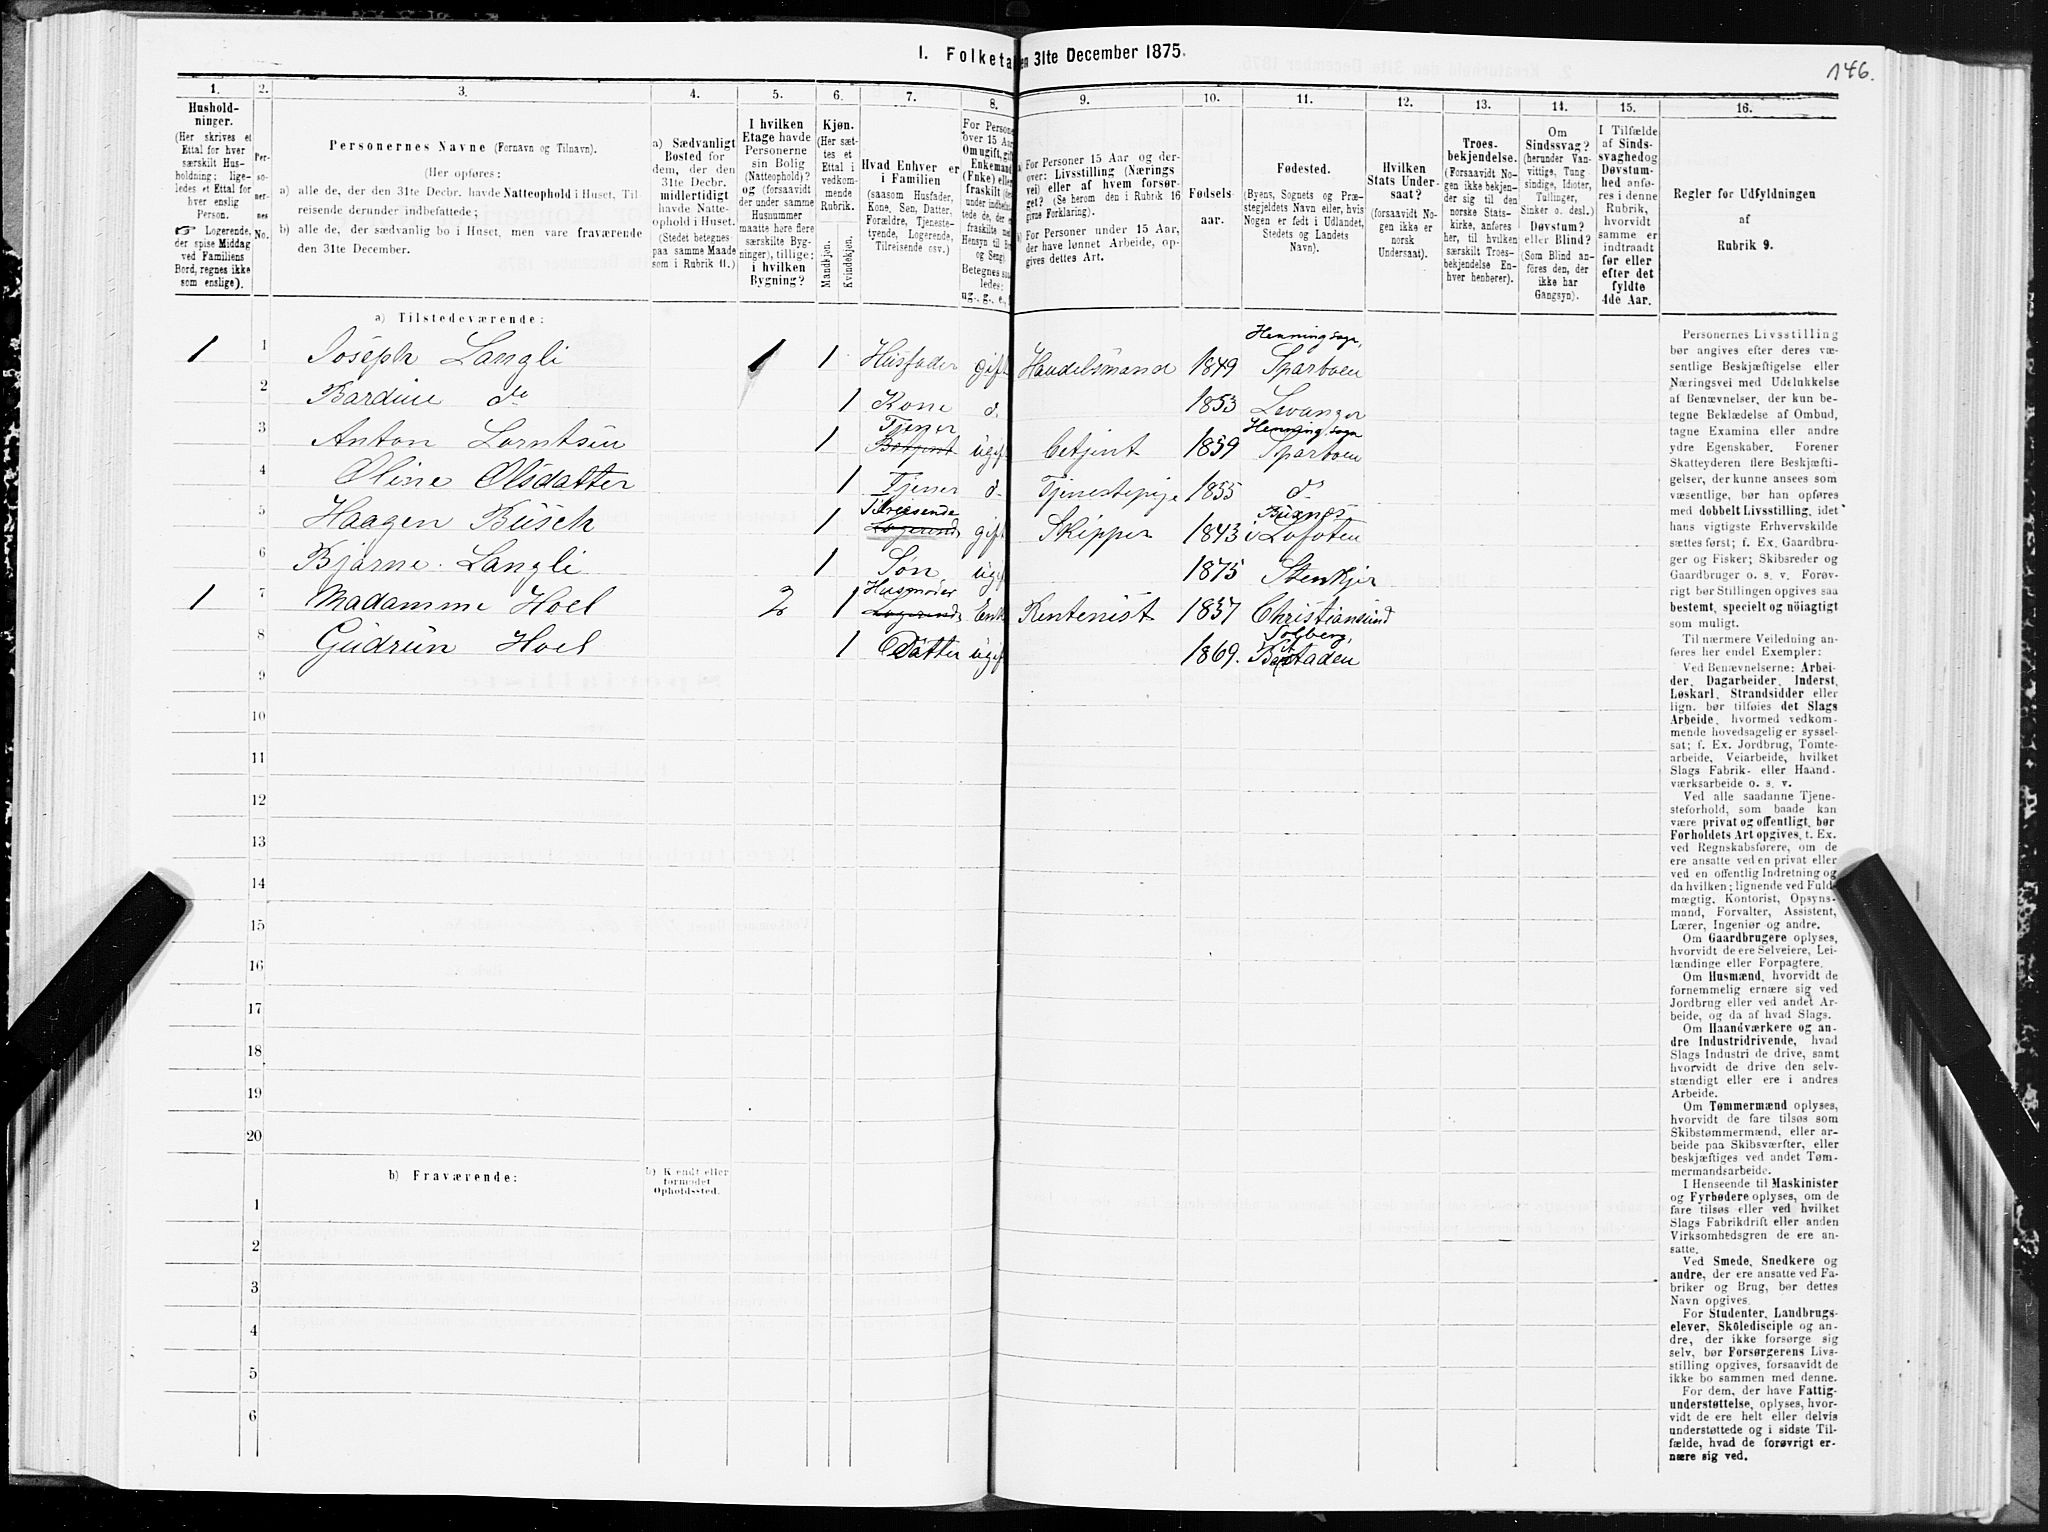 I. Folketa en 31te December 1875.
146.
1. 2. 3. 4. 5. 6. 7. 8. 9. 10. 11. 12. 13. 14. 15. 16.
Hushold-
ninger.
(Her skrives et
Ettal for hver
særskilt Hus-
holdning; lige-
ledes et Ettal for
hver enslig
Person.
☞ Logerende,
der spise Middag
ved Familiens
Bord, regnes ikke
som enslige).
Per-
so-
ner-
nes
No.
Personernes Navne (Fornavn og Tilnavn).
(Her opføres:
a) alle de, der den 31te Decbr. havde Natteophold i Huset, Til-
reisende derunder indbefattede;
b) alle de, der sædvanlig bo i Huset, men vare fraværende
den 31te December.
a) Sædvanligt
Bosted for
dem, der den
31te Decbr.
midlertidigt
havde Natte-
ophold i Huset.
(Stedet betegnes
paa samme Maade
som i Rubrik 11.)
I hvilken
Etage havde
Personerne
sin Bolig
(Natteophold)?
og (forsaavidt
der under samme
Husnummer
maatte høre flere
særskilte Byg-
ninger), tillige:
i hvilken
Bygning?
Kjøn.
(Her sæt-
tes et
Ettal i
vedkom-
mende
Rubrik.
Mandkjøn.
Kvindekjøn.
Hvad Enhver er
i Familien
(saasom Husfader,
Kone, Søn, Datter,
Forældre, Tjeneste-
tyende, Logerende,
Tilreisende osv.)
For Persone
over 15 Aar
Om ugift, gi
Enkemand
(Enke) elle
fraskilt
Betegnes saa
ledes:
ug., g., e.,
a) For Personer 15 Aar og der-
over: Livsstilling (Nærings
vei) eller af hvem forsør-
get? (Se herom den i Rubrik 16
givne Forklaring).
b) For Personer under 15 Aar,
der have lønnet Arbeide, op-
gives dettes Art.
Fødsels-
aar.
Fødested.
(Byens, Sognets og Præ-
stegjeldets Navn eller, hvis
Nogen er født i Udlandet,
Stedets og Landets
Navn).
Hvilken
Stats Under-
saat?
(forsaavidt No-
gen ikke er
norsk
Undersaat).
Troes-
bekjendelse.
(Forsaavidt No-
gen ikke bekjen-
der sig til den
norske Stats-
kirke, anføres
her, til hvilken
særskilt Troes-
bekjendelse En-
hver henhører).
Om
Sindssvag?
(herunder Van-
vittige, Tung
sindige, Idioter,
Tullinger,
Sinker o. desl.)
Døvstum?
eller Blind?
(Som Blind an-
føres den, der
ikke har
Gangsyn).
I Tilfælde
af Sinds-
svaghed og
Døvstum-
hed anfø-
res i denne
Rubrik,
hvorvidt
samme er
indtraadt
før eller
efter det
fyldte
4de Aar.
Regler før Udfyldningen
af
Rubrik 9.
a) Tilstedeværende:
1 1 Joseph Langli 1 1 Husfader gift Handelsmand 1849 Henning Sogn, Sparboen
2 Bardine do 1 Kone d. 1853 Levanger
3 Anton Lorntsen 1 Tjener ugift Betjent 1859 Henning Sogn Sparboen
4 Oline Olsdatter 1 Tjener d. Tjenestepige 1855 do
5 Haagen Busch 1 Tilreisende Logerende gift Skipper 1843 Buxnes i Lofoten
6 Bjarne Langli 1 Søn ugift 1875 Stenkjer
1 7 Madamme Hoel 2 1 Husmoder Logerende Enke Rentenist 1837 Christiansund
8 Gudrun Hoel 1 Datter ugift 1869. Solberg,
9
10
11
12
13
14
15
16
17
18
19
20
b) Fraværende:
b) Kjendt eller
formodet
Opholdssted.
1
2
3
4
5
6
Personernes Livsstilling
bør angives efter deres væ-
sentlige Beskjæftigelse eller
Næringsvei med Udelukkelse
af Benævnelser, der kun be-
tegne Beklædelse af Ombud,
tagne Examina eller andre
ydre Egenskaber. Forener
Skatteyderen flere Beskjæfti-
gelser, der kunne ansees som
væsentlige, bør han opføres
med dobbelt Livsstilling, idet
hans vigtigste Erhvervskilde
sættes først; f. Ex. Gaardbru-
ger og Fisker; Skibsreder og
Gaardbruger o. s. v. Forøv-
rigt bør Stillingen opgives saa
bestemt, specielt og nöiagtigt
som muligt.
Til nærmere Veiledning an-
føres her endel Exempler:
Ved Benævnelserne: Arbei-
der, Dagarbeider, Inderst,
Løskarl, Strandsidder eller
lign. bør tilføies det Slags
Arbeide, hvormed vedkom-
mende hovedsagelig er syssel-
sat; f. Ex. Jordbrug, Tomte-
arbeide, Veiarbeide, hvilket
Slags Fabrik- eller Haand-
værksarbeide o. s. v.
Ved alle saadanne Tjene-
steforhold, som baade kan
være privat og offentligt, bør
Forholdets Art opgives, t. Ex.
ved Regnskabsførere, om de
ere ansatte ved en privat eller
ved en offentlig Indretning og
da hvilken; lignende ved Fuld-
mægtig, Kontorist, Opsyns-
mand, Forvalter, Assistent,
Lærer, Ingeniør og andre.
Om Gaardbrugere oplyses,
hvorvidt de ere Selveiere, Lei-
lændinge eller Forpagtere.
Om Husmænd, hvorvidt de
fornemmelig ernære sig ved
Jordbrug eller ved andet Ar-
beide, og da af hvad Slags.
Om Haandværkere og an-
dre Industridrivende, hvad
Slags Industri de drive, samt
hvorvidt de drive den selv-
stændigt eller ere i andres
Arbeide.
Om Tømmermænd oplyses,
hvorvidt de fare tilsøs som
Skibstømmermænd, eller ar-
beide paa Skibsværfter, eller
beskjæftiges ved andet Tøm-
mermandsarbeide.
I Henseende til Maskinister
og Fyrbødere oplyses, om de
fare tilsøs eller ved hvilket
Slags Fabrikdrift eller anden
Virksomhedsgren de ere an-
satte.
Ved Smede, Snedkere og
andre, der ere ansatte ved Fa-
briker og Brug, bør dettes
Navn opgives.
For Studenter, Landbrugs-
elever, Skoledisciple og an-
dre, der ikke forsørge sig
selv, bør Forsørgerens Livs-
stilling opgives, forsaavidt de
ikke bo sammen med denne.
For dem, der have Fattig-
understøttelse, oplyses, hvor-
vidt de ere helt eller delvis
understøttede og i sidste Til-
fælde, hvad de forøvrigt er-
nære sig ved.